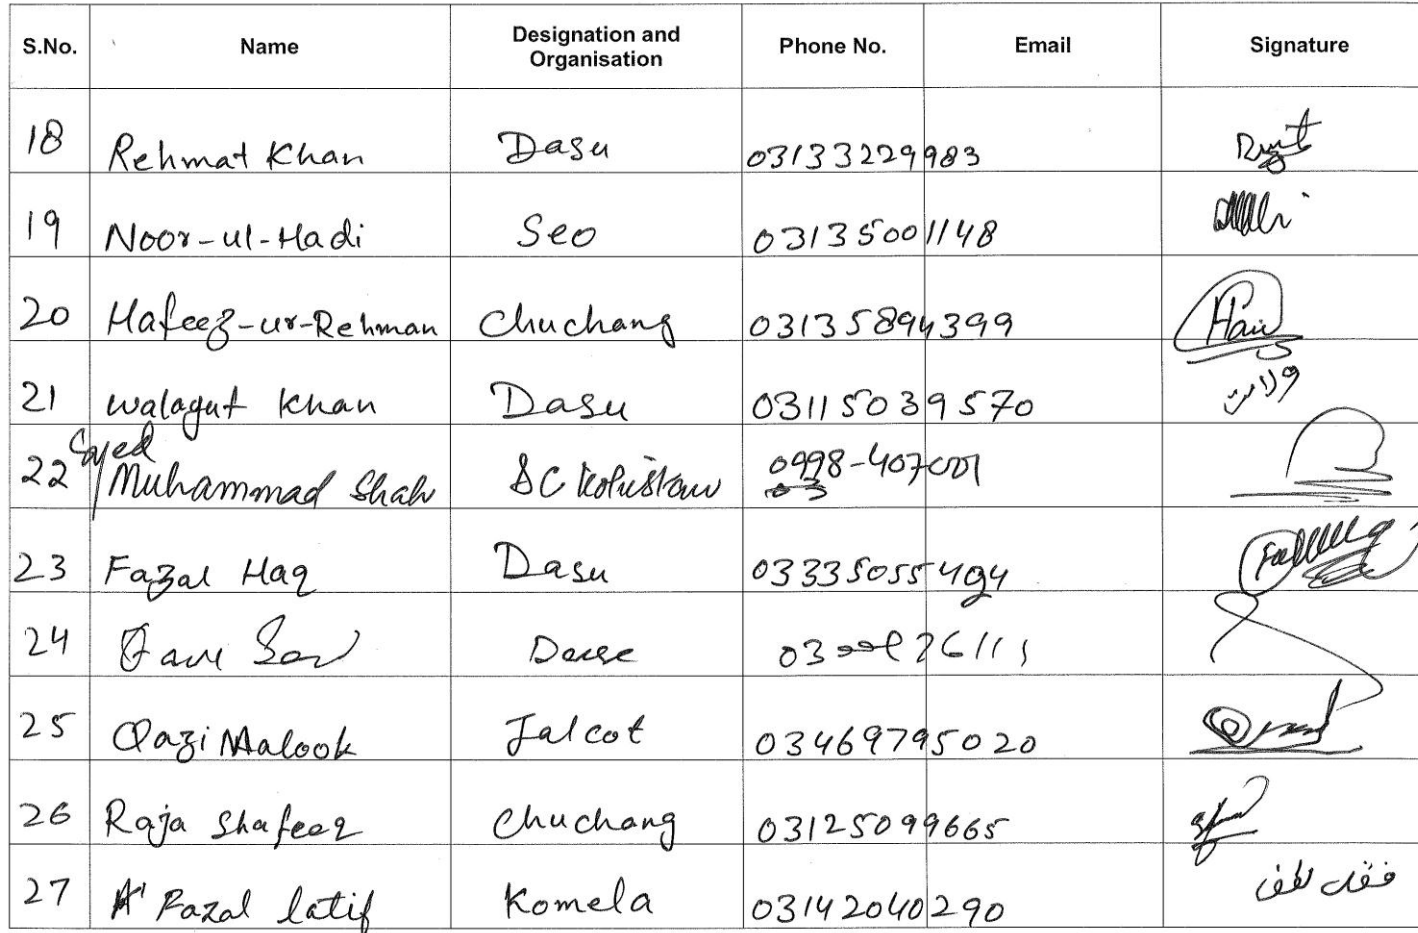 S.No. Name Designation and Organisation Phone No. Email Signature
18 Rehmat Khan Dasu 03133229983
19 Noor-ul-Hadi Seo 03135001148
20 Hafeez-ur-Rehman Chuchang 03135894399
21 walagut Khan Dasu 03115039570 ولایت
22 Sayed Muhammad Shah 0998-407001
23 Fazal Haq Dasu
24
25 Qazi Malook Jalcot 03469795020
26 Raja Shafeeq Chuchang 03125099665
27 Fazal latif Komela 03142040290